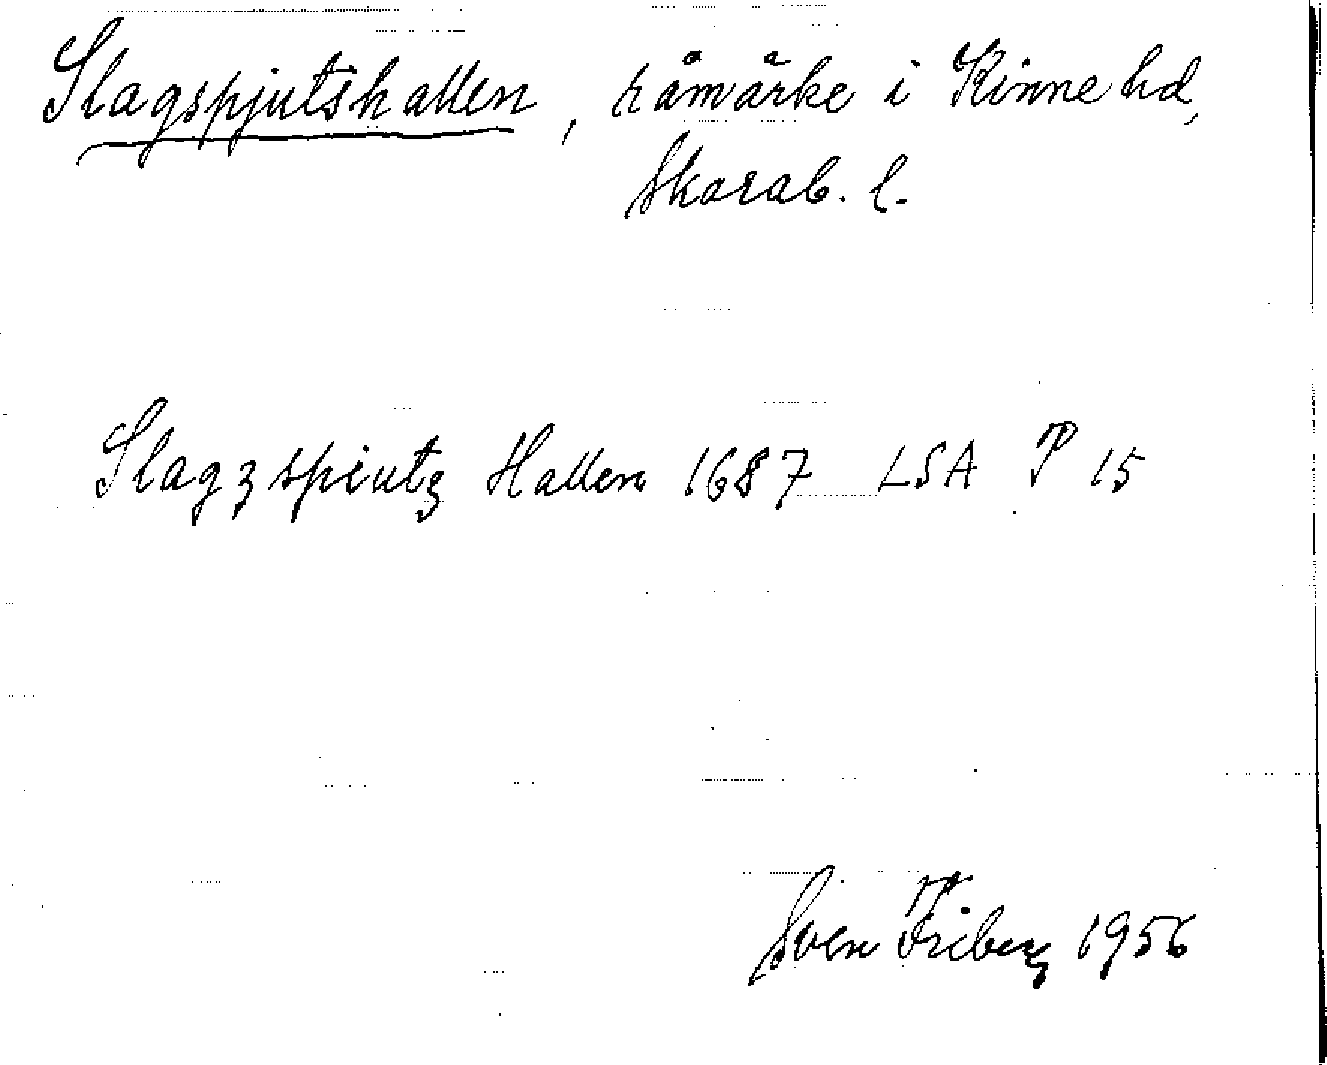 Slagspjutshallen, råmärke i Kinne hd,
Skarab. l.
Slagz spiutz Hallen 1687 LSA P 15
Sven Friberg 1956